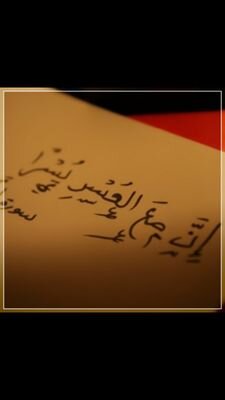 إِنَّ مَعَ العُسْرِ يُسْرًا
سورة